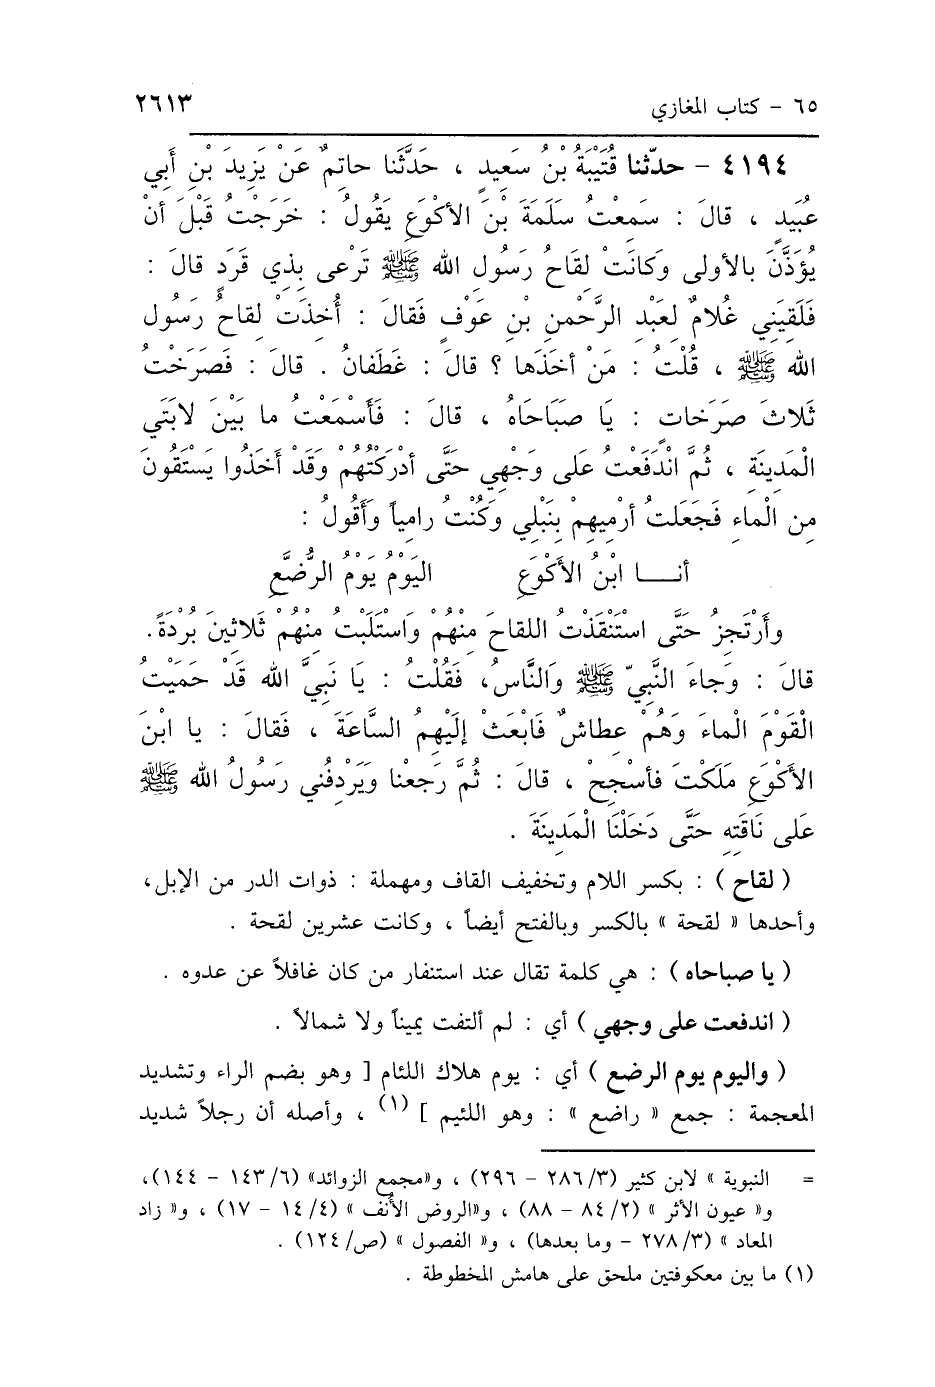 ٦٥ - كتاب المغازي ٢٦١٣
٤١٩٤ - حدّثنا قُتَيْبَةُ بْنُ سَعِيدٍ ، حَدَّثَنا حاتِمٌ عَنْ يَزِيدَ بْنِ أَبي
عُبَيدٍ ، قالَ : سَمِعْتُ سَلَمَةَ بْنَ الأكْوَعِ يَقُولُ : خَرَجْتُ قَبْلَ أنْ
يُؤَذَّنَ بالأولى وَكانَتْ لِقاحُ رَسُولِ الله ﷺ تَرْعى بِذي قَرَدٍ قالَ :
فَلَقِيَنِي غُلامٌ لِعَبْدِ الرَّحْمنِ بْنِ عَوْفٍ فَقالَ : أُخِذَتْ لِقاحُ رَسُولِ
الله ﷺ ، قُلْتُ : مَنْ أخَذَها ؟ قالَ : غَطَفانُ . قالَ : فَصَرَخْتُ
ثَلاثَ صَرَخاتٍ : يَا صَبَاحَاهُ ، قالَ : فَأَسْمَعْتُ ما بَيْنَ لابَتَيِ
الْمَدِينَةِ ، ثُمَّ انْدَفَعْتُ عَلى وَجْهِي حَتَّى أدْرَكْتُهُمْ وَقَدْ أخَذُوا يَسْتَقُونَ
مِنَ الْماءِ فَجَعَلتُ أرْمِيهِمْ بِنَبْلِي وَكُنْتُ رامِياً وَأَقُولُ :
أنـــا ابْنُ الأَكْوَعِ اليَوْمُ يَوْمُ الرُّضَّعِ
وأَرْتَجِزُ حَتَّى اسْتَنْقَذْتُ اللقاحَ مِنْهُمْ وَاسْتَلَبْتُ مِنْهُمْ ثَلاثِينَ بُرْدَةً.
قالَ : وَجاءَ النَّبِيّ ﷺ وَالنَّاسُ، فَقُلْتُ : يَا نَبِيَّ الله قَدْ حَمَيْتُ
الْقَوْمَ الْماءَ وَهُمْ عِطاشٌ فَابْعَثْ إلَيْهِمُ السَّاعَةَ ، فَقالَ : يا ابْنَ
الأكْوَعِ مَلَكْتَ فأسْجِحْ ، قالَ : ثُمَّ رَجَعْنا وَيَرْدِفُنِي رَسُولُ الله ﷺ
عَلى نَاقَتِهِ حَتَّى دَخَلْنَا الْمَدِينَةَ .
( لقاح ) : بكسر اللام وتخفيف القاف ومهملة : ذوات الدر من الإبل،
وأحدها « لقحة » بالكسر وبالفتح أيضاً ، وكانت عشرين لقحة .
( يا صباحاه ) : هي كلمة تقال عند استنفار من كان غافلاً عن عدوه .
( اندفعت على وجهي ) أي : لم ألتفت يميناً ولا شمالاً .
( واليوم يوم الرضع ) أي : يوم هلاك اللئام [ وهو بضم الراء وتشديد
المعجمة : جمع « راضع » : وهو اللئيم ] (١) ، وأصله أن رجلاً شديد
= النبوية » لابن كثير (٣/ ٢٨٦ - ٢٩٦) ، و«مجمع الزوائد» (٦/ ١٤٣ - ١٤٤)،
و« عيون الأثر » (٢/ ٨٤ - ٨٨) ، و«الروض الأُنف » (٤/ ١٤ - ١٧) ، و« زاد
المعاد » (٣/ ٢٧٨ - وما بعدها) ، و« الفصول » (ص/ ١٢٤) .
(١) ما بين معكوفتين ملحق على هامش المخطوطة .